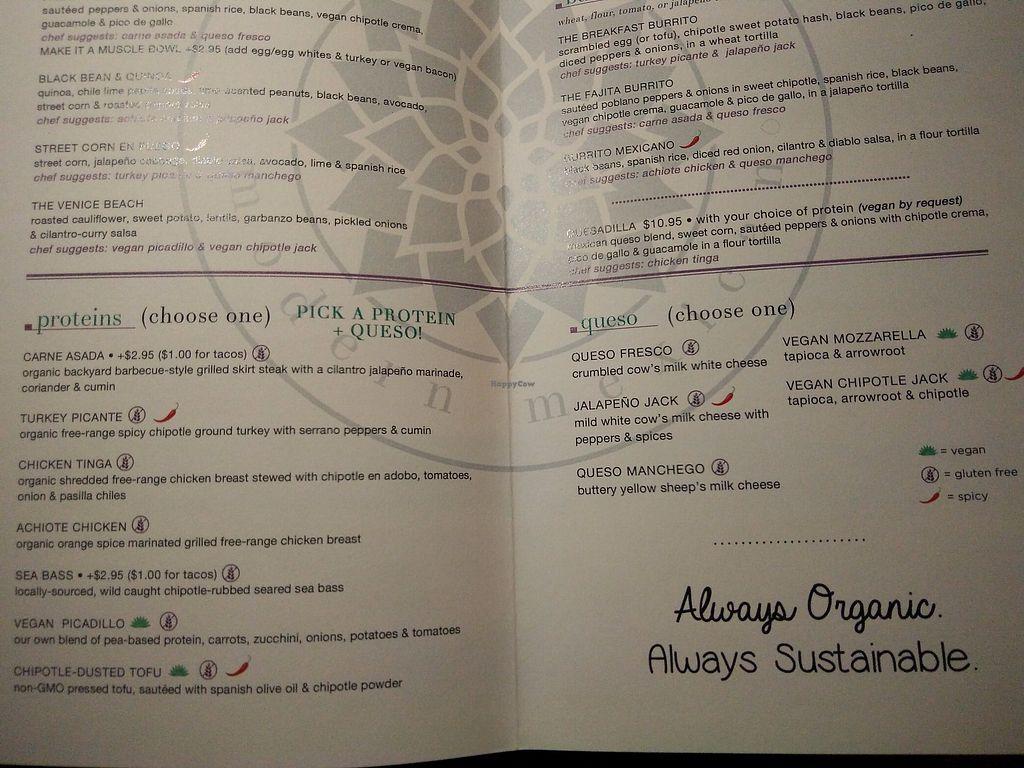 sautéed peppers & onions, spanish rice, black beans, vegan chipotle crema,
guacamole & pico de gallo
chef suggests: carne asada & queso fresco
MAKE IT A MUSCLE BOWL +$2.95 (add egg/egg whites & turkey or vegan bacon)
BLACK BEAN & QUINOA
quinoa, chile lime scented peanuts, black beans, avocado,
street corn &
chef suggests: jalapeño jack
STREET CORN EN
street corn, jalapeño diablo salsa, avocado, lime & spanish rice
chef suggests: turkey picante & queso manchego
THE VENICE BEACH
roasted cauliflower, sweet potato, lentils, garbanzo beans, pickled onions
& cilantro-curry salsa
chef suggests: vegan picadillo & vegan chipotle jack
proteins (choose one) PICK A PROTEIN
+ QUESO!
CARNE ASADA • +$2.95 ($1.00 for tacos)
organic backyard barbecue-style grilled skirt steak with a cilantro jalapeño marinade,
coriander & cumin
TURKEY PICANTE
organic free-range spicy chipotle ground turkey with serrano peppers & cumin
CHICKEN TINGA
organic shredded free-range chicken breast stewed with chipotle en adobo, tomatoes,
onion & pasilla chiles
ACHIOTE CHICKEN
organic orange spice marinated grilled free-range chicken breast
SEA BASS • +$2.95 ($1.00 for tacos)
locally-sourced, wild caught chipotle-rubbed seared sea bass
VEGAN PICADILLO
our own blend of pea-based protein, carrots, zucchini, onions, potatoes & tomatoes
CHIPOTLE-DUSTED TOFU
non-GMO pressed tofu, sautéed with spanish olive oil & chipotle powder
wheat, flour, tomato, or jalapeño
THE BREAKFAST BURRITO
scrambled egg (or tofu), chipotle sweet potato hash, black beans, pico de gallo,
diced peppers & onions, in a wheat tortilla
chef suggests: turkey picante & jalapeño jack
THE FAJITA BURRITO
sautéed poblano peppers & onions in sweet chipotle, spanish rice, black beans,
vegan chipotle crema, guacamole & pico de gallo, in a jalapeño tortilla
chef suggests: carne asada & queso fresco
BURRITO MEXICANO
black beans, spanish rice, diced red onion, cilantro & diablo salsa, in a flour tortilla
chef suggests: achiote chicken & queso manchego
QUESADILLA $10.95 • with your choice of protein (vegan by request)
mexican queso blend, sweet corn, sautéed peppers & onions with chipotle crema,
pico de gallo & guacamole in a flour tortilla
chef suggests: chicken tinga
queso (choose one)
QUESO FRESCO
crumbled cow's milk white cheese
JALAPEÑO JACK
mild white cow's milk cheese with
peppers & spices
QUESO MANCHEGO
buttery yellow sheep's milk cheese
VEGAN MOZZARELLA
tapioca & arrowroot
VEGAN CHIPOTLE JACK
tapioca, arrowroot & chipotle
= vegan
= gluten free
= spicy
Always Organic.
Always Sustainable.
modern mexican
HappyCow